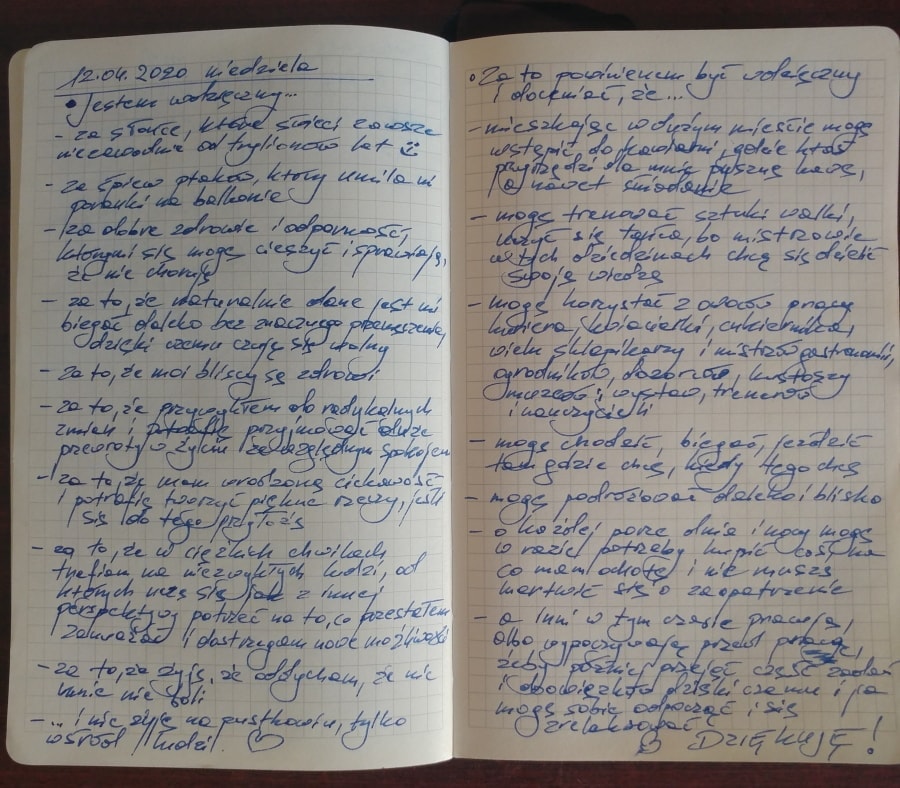 12.04.2020 niedziela
• Jestem wdzięczny...
- za słońce, które świeci zawsze
niezawodnie od trylionów lat :)
- za śpiew ptaków, który umila mi
poranki na balkonie
- za dobre zdrowie i odporność,
którymi się mogę cieszyć i sprawiają,
że nie choruję
- za to, że naturalnie dane jest mi
biegać daleko bez znacznego przemęczenia,
dzięki czemu czuję się wolny
- za to, że moi bliscy są zdrowi
- za to, że przywykłem do radykalnych
zmian i przyjmować duże
przewroty w życiu ze względnym spokojem
- za to, że mam wrodzoną ciekawość
i potrafię tworzyć piękne rzeczy, jeśli
się do tego przyłożę
- za to, że w ciężkich chwilach
trafiam na niezwykłych ludzi, od
których uczę się jak z innej
perspektywy patrzeć na to, co przestałem
zauważać i dostrzegam nowe możliwości
- za to, że żyję, że oddycham, że nic
mnie nie boli
- ... i nie żyję na pustkowiu, tylko
wśród ludzi. ♡
• Za to powinienem być wdzięczny
i doceniać, że...
- mieszkając w dużym mieście mogę
wstąpić do kawiarni, gdzie ktoś
przyrządzi dla mnie pyszną kawę,
a nawet śniadanie
- mogę trenować sztuki walki,
uczyć się tańca, bo mistrzowie
w tych dziedzinach chcą się dzielić
swoją wiedzą
- mogę korzystać z owoców pracy
kuriera, kwiaciarki, cukiernika,
wielu sklepikarzy i mistrzów gastronomii,
ogrodników, dozorców, kustoszy
muzeów i wystaw, trenerów
i nauczycieli
- mogę chodzić, biegać, jeździć
tam gdzie chcę, kiedy tego chcę
- mogę podróżować daleko i blisko
- o każdej porze dnia i nocy mogę
w razie potrzeby kupić coś na
co mam ochotę i nie muszę
martwić się o zaopatrzenie
- a inni w tym czasie pracują,
albo wypoczywają przed pracą,
żeby później przejąć część zadań
i obowiązków dzięki czemu i ja
mogę sobie odpocząć i się
zrelaksować
DZIĘKUJĘ!